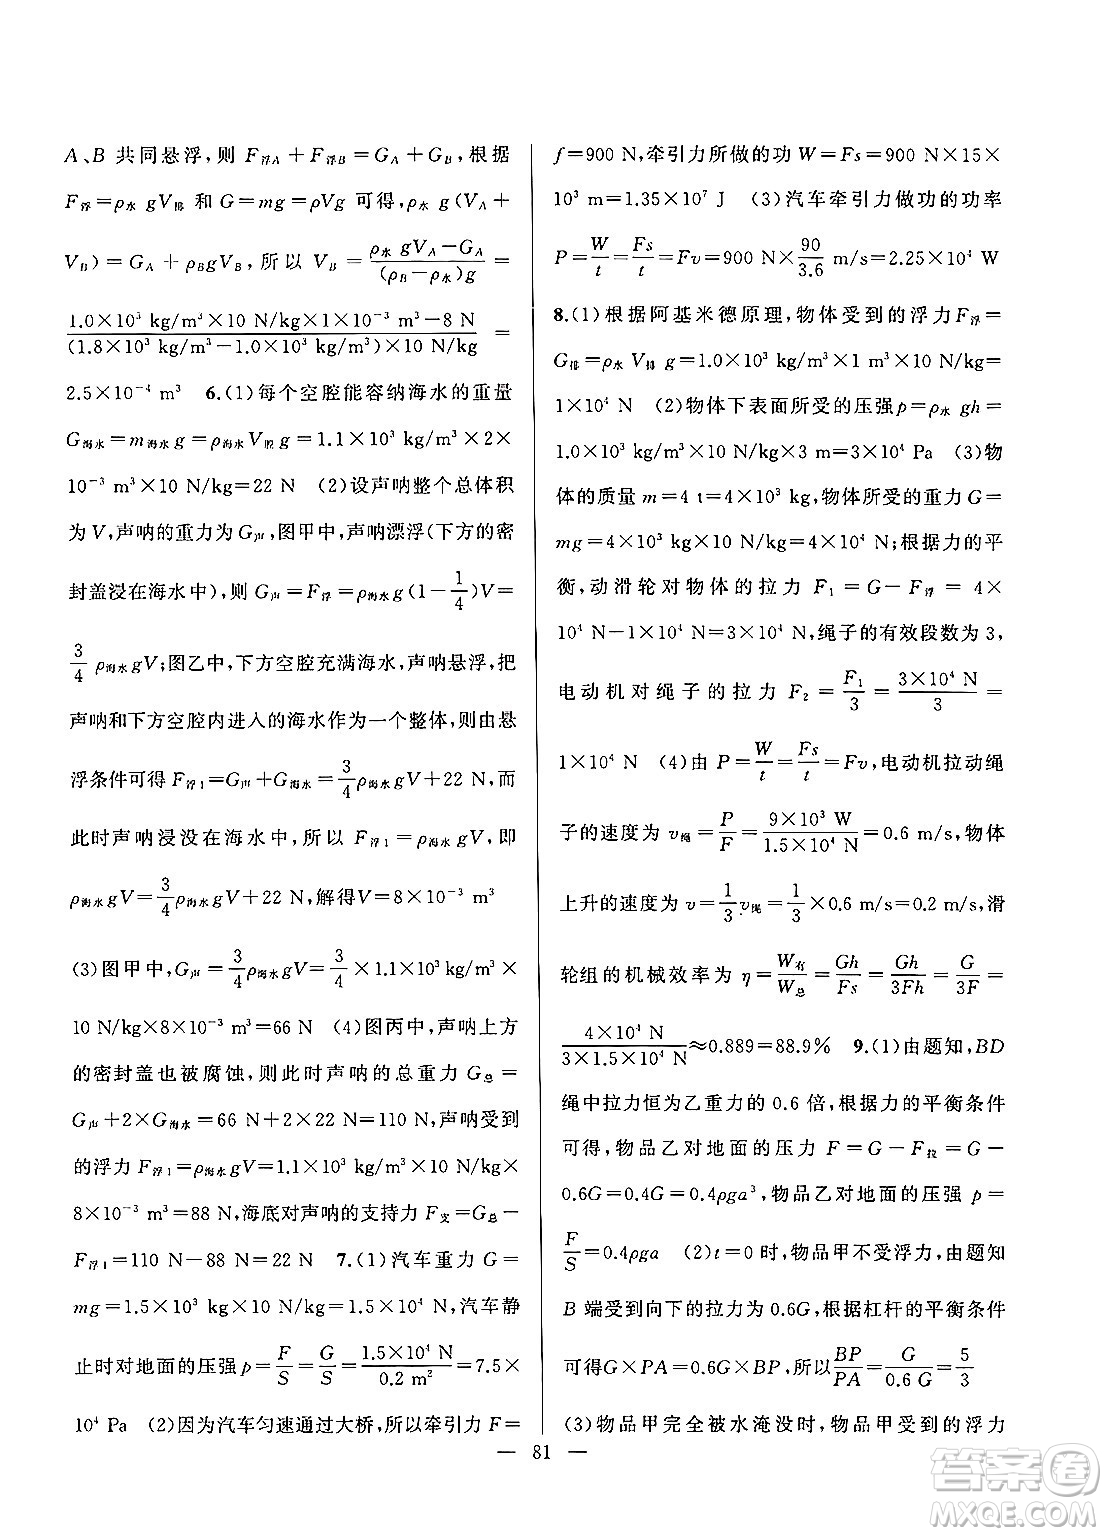 A、B 共同悬浮,则 F浮A+F浮B=GA+GB,根据
F浮=ρ水 gV排 和 G=mg=ρVg 可得,ρ水 g(VA+
VB)=GA+ρBgVB,所以 VB=(ρ水 gVA-GA)/((ρB-ρ水)g)=
(1.0×10³ kg/m³×10 N/kg×1×10⁻³ m³-8 N)/((1.8×10³ kg/m³-1.0×10³ kg/m³)×10 N/kg)=
2.5×10⁻⁴ m³ 6.(1)每个空腔能容纳海水的重量
G海水=m海水g=ρ海水V腔g=1.1×10³ kg/m³×2×
10⁻³ m³×10 N/kg=22 N (2)设声呐整个总体积
为 V,声呐的重力为 G声,图甲中,声呐漂浮(下方的密
封盖浸在海水中),则 G声=F浮=ρ海水g(1-1/4)V=
3/4 ρ海水gV;图乙中,下方空腔充满海水,声呐悬浮,把
声呐和下方空腔内进入的海水作为一个整体,则由悬
浮条件可得 F浮1=G声+G海水=3/4ρ海水gV+22 N,而
此时声呐浸没在海水中,所以 F浮1=ρ海水gV,即
ρ海水gV=3/4ρ海水gV+22 N,解得V=8×10⁻³ m³
(3)图甲中,G声=3/4ρ海水gV=3/4×1.1×10³ kg/m³×
10 N/kg×8×10⁻³ m³=66 N (4)图丙中,声呐上方
的密封盖也被腐蚀,则此时声呐的总重力 G总=
G声+2×G海水=66 N+2×22 N=110 N,声呐受到
的浮力 F浮1=ρ海水gV=1.1×10³ kg/m³×10 N/kg×
8×10⁻³ m³=88 N,海底对声呐的支持力 F支=G总-
F浮1=110 N-88 N=22 N 7.(1)汽车重力 G=
mg=1.5×10³ kg×10 N/kg=1.5×10⁴ N,汽车静
止时对地面的压强p=F/S=G/S=(1.5×10⁴ N)/(0.2 m²)=7.5×
10⁴ Pa (2)因为汽车匀速通过大桥,所以牵引力 F=
f=900 N,牵引力所做的功 W=Fs=900 N×15×
10³ m=1.35×10⁷ J (3)汽车牵引力做功的功率
P=W/t=Fs/t=Fv=900 N×90/3.6 m/s=2.25×10⁴ W
8.(1)根据阿基米德原理,物体受到的浮力F浮=
G排=ρ水 V排 g=1.0×10³ kg/m³×1 m³×10 N/kg=
1×10⁴ N (2)物体下表面所受的压强p=ρ水 gh=
1.0×10³ kg/m³×10 N/kg×3 m=3×10⁴ Pa (3)物
体的质量 m=4 t=4×10³ kg,物体所受的重力 G=
mg=4×10³ kg×10 N/kg=4×10⁴ N;根据力的平
衡,动滑轮对物体的拉力 F₁=G-F浮=4×
10⁴ N-1×10⁴ N=3×10⁴ N,绳子的有效段数为 3,
电动机对绳子的拉力 F₂=F₁/3=(3×10⁴ N)/3=
1×10⁴ N (4)由 P=W/t=Fs/t=Fv,电动机拉动绳
子的速度为 v绳=P/F=(9×10³ W)/(1.5×10⁴ N)=0.6 m/s,物体
上升的速度为 v=1/3v绳=1/3×0.6 m/s=0.2 m/s,滑
轮组的机械效率为 η=W有/W总=Gh/Fs=Gh/3Fh=G/3F=
(4×10⁴ N)/(3×1.5×10⁴ N)≈0.889=88.9% 9.(1)由题知,BD
绳中拉力恒为乙重力的 0.6 倍,根据力的平衡条件
可得,物品乙对地面的压力 F=G-F拉=G-
0.6G=0.4G=0.4ρga³,物品乙对地面的压强 p=
F/S=0.4ρga (2)t=0 时,物品甲不受浮力,由题知
B 端受到向下的拉力为 0.6G,根据杠杆的平衡条件
可得G×PA=0.6G×BP,所以BP/PA=G/0.6 G=5/3
(3)物品甲完全被水淹没时,物品甲受到的浮力
— 81 —
答案圈
MXQE.COM